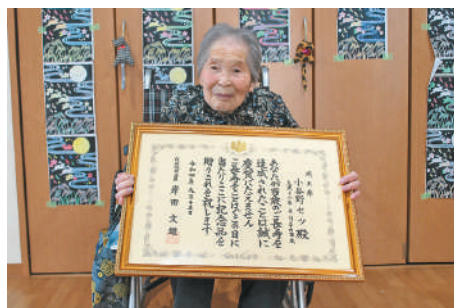 祝百寿
小菅野セツ殿
あなたが百歳のご長寿を
達成されたことは誠に
慶賀にたえません
ご長寿をことほぐ茶日に
当たりここに記念品を
贈りこれを祝します
令和四年九月十五日
内閣総理大臣 岸田文雄